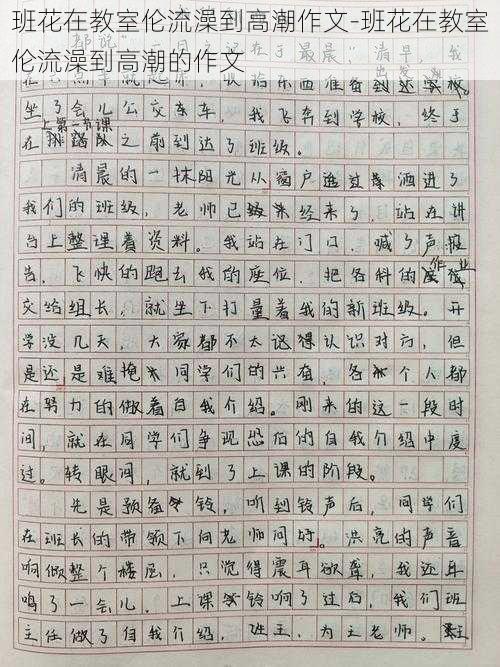 班花在教室伦流澡到高潮作文-班花在教室
伦流澡到高潮的作文
坐了会儿公交车，我飞奔到学校，终于
上第一节课
在之前到达了班级。
清晨的一抹阳光从窗户透过来洒进了
我们的班级，老师已经来了，站在讲
台上整理着资料。我站在门口，喊了声报
告，飞快的跑去我的座位，把各科的作业
交给组长，就坐下打量着我的新班级。开
学没几天，大家都不太说得认识对方，但
是还是难掩同学们的兴奋，各个人都
在努力的做着自我介绍。刚来的这一段时
间，就在同学们争现恐后的自我介绍中度
过。转眼间，就到了上课的阶段。
先是预备铃，听到铃声后，同学们
在班长的带领下向老师问好。洪亮的声音
响倾整个楼层，只觉得震耳欲聋，我还耳
鸣了一会儿。上课铃响了过后，我们班
主任做了自我介绍，班主，为王老师。